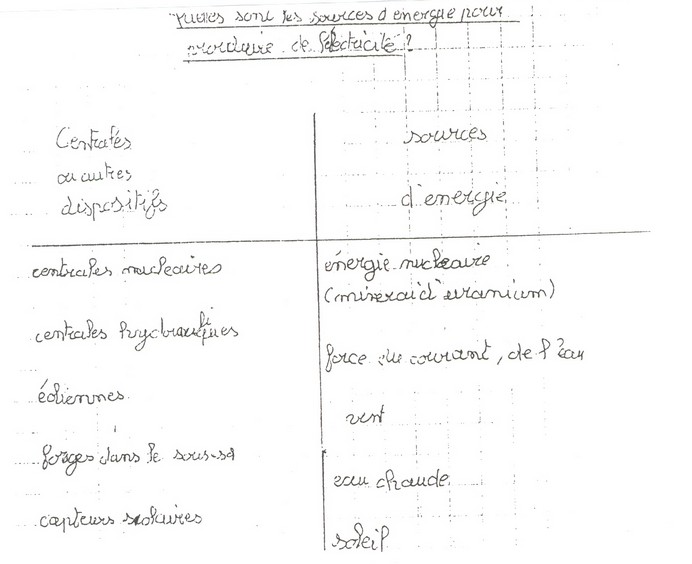 quelles sont les sources d'energie pour
produire de l'électricité?
Centrales
ou autres
dispositifs
sources
d'energie
centrales nucleaires
énergie nucleaire
(minerai d'uranium)
centrales hydrauliques
force du courant, de l'eau
éoliennes
vent
forages dans le sous-sol
eau chaude
capteurs solaires
soleil